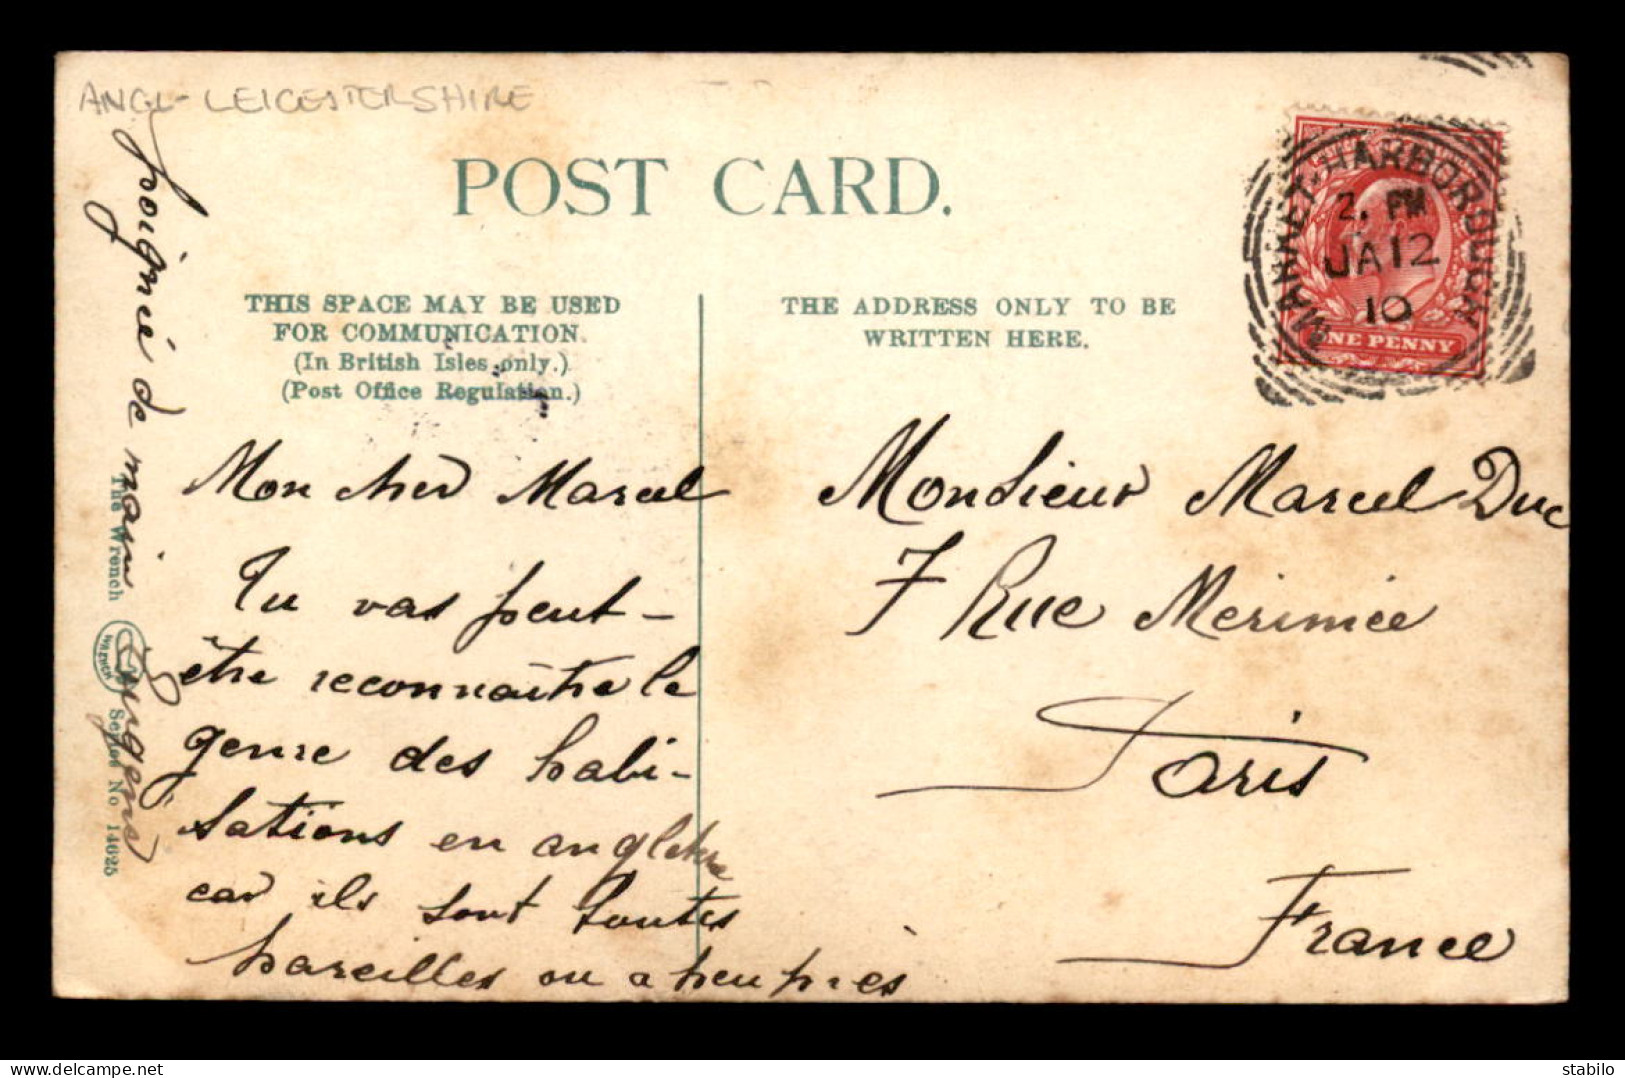 ANGL-LEICESTERSHIRE
POST CARD.
MARKET-HARBOROUGH
2. PM
JA 12
10
ONE PENNY
THIS SPACE MAY BE USED
FOR COMMUNICATION.
(In British Isles only.)
(Post Office Regulation.)
THE ADDRESS ONLY TO BE
WRITTEN HERE.
Mon cher Marcel
Tu vas peut-
être reconnaître le
genre des habi-
tations en angleterre
car ils sont toutes
pareilles ou a peu près
poignée de main
Monsieur Marcel Duc
7 Rue Merimée
Paris
France
The Wrench
WRENCH
Series No 14625
delcampe.net
stabilo